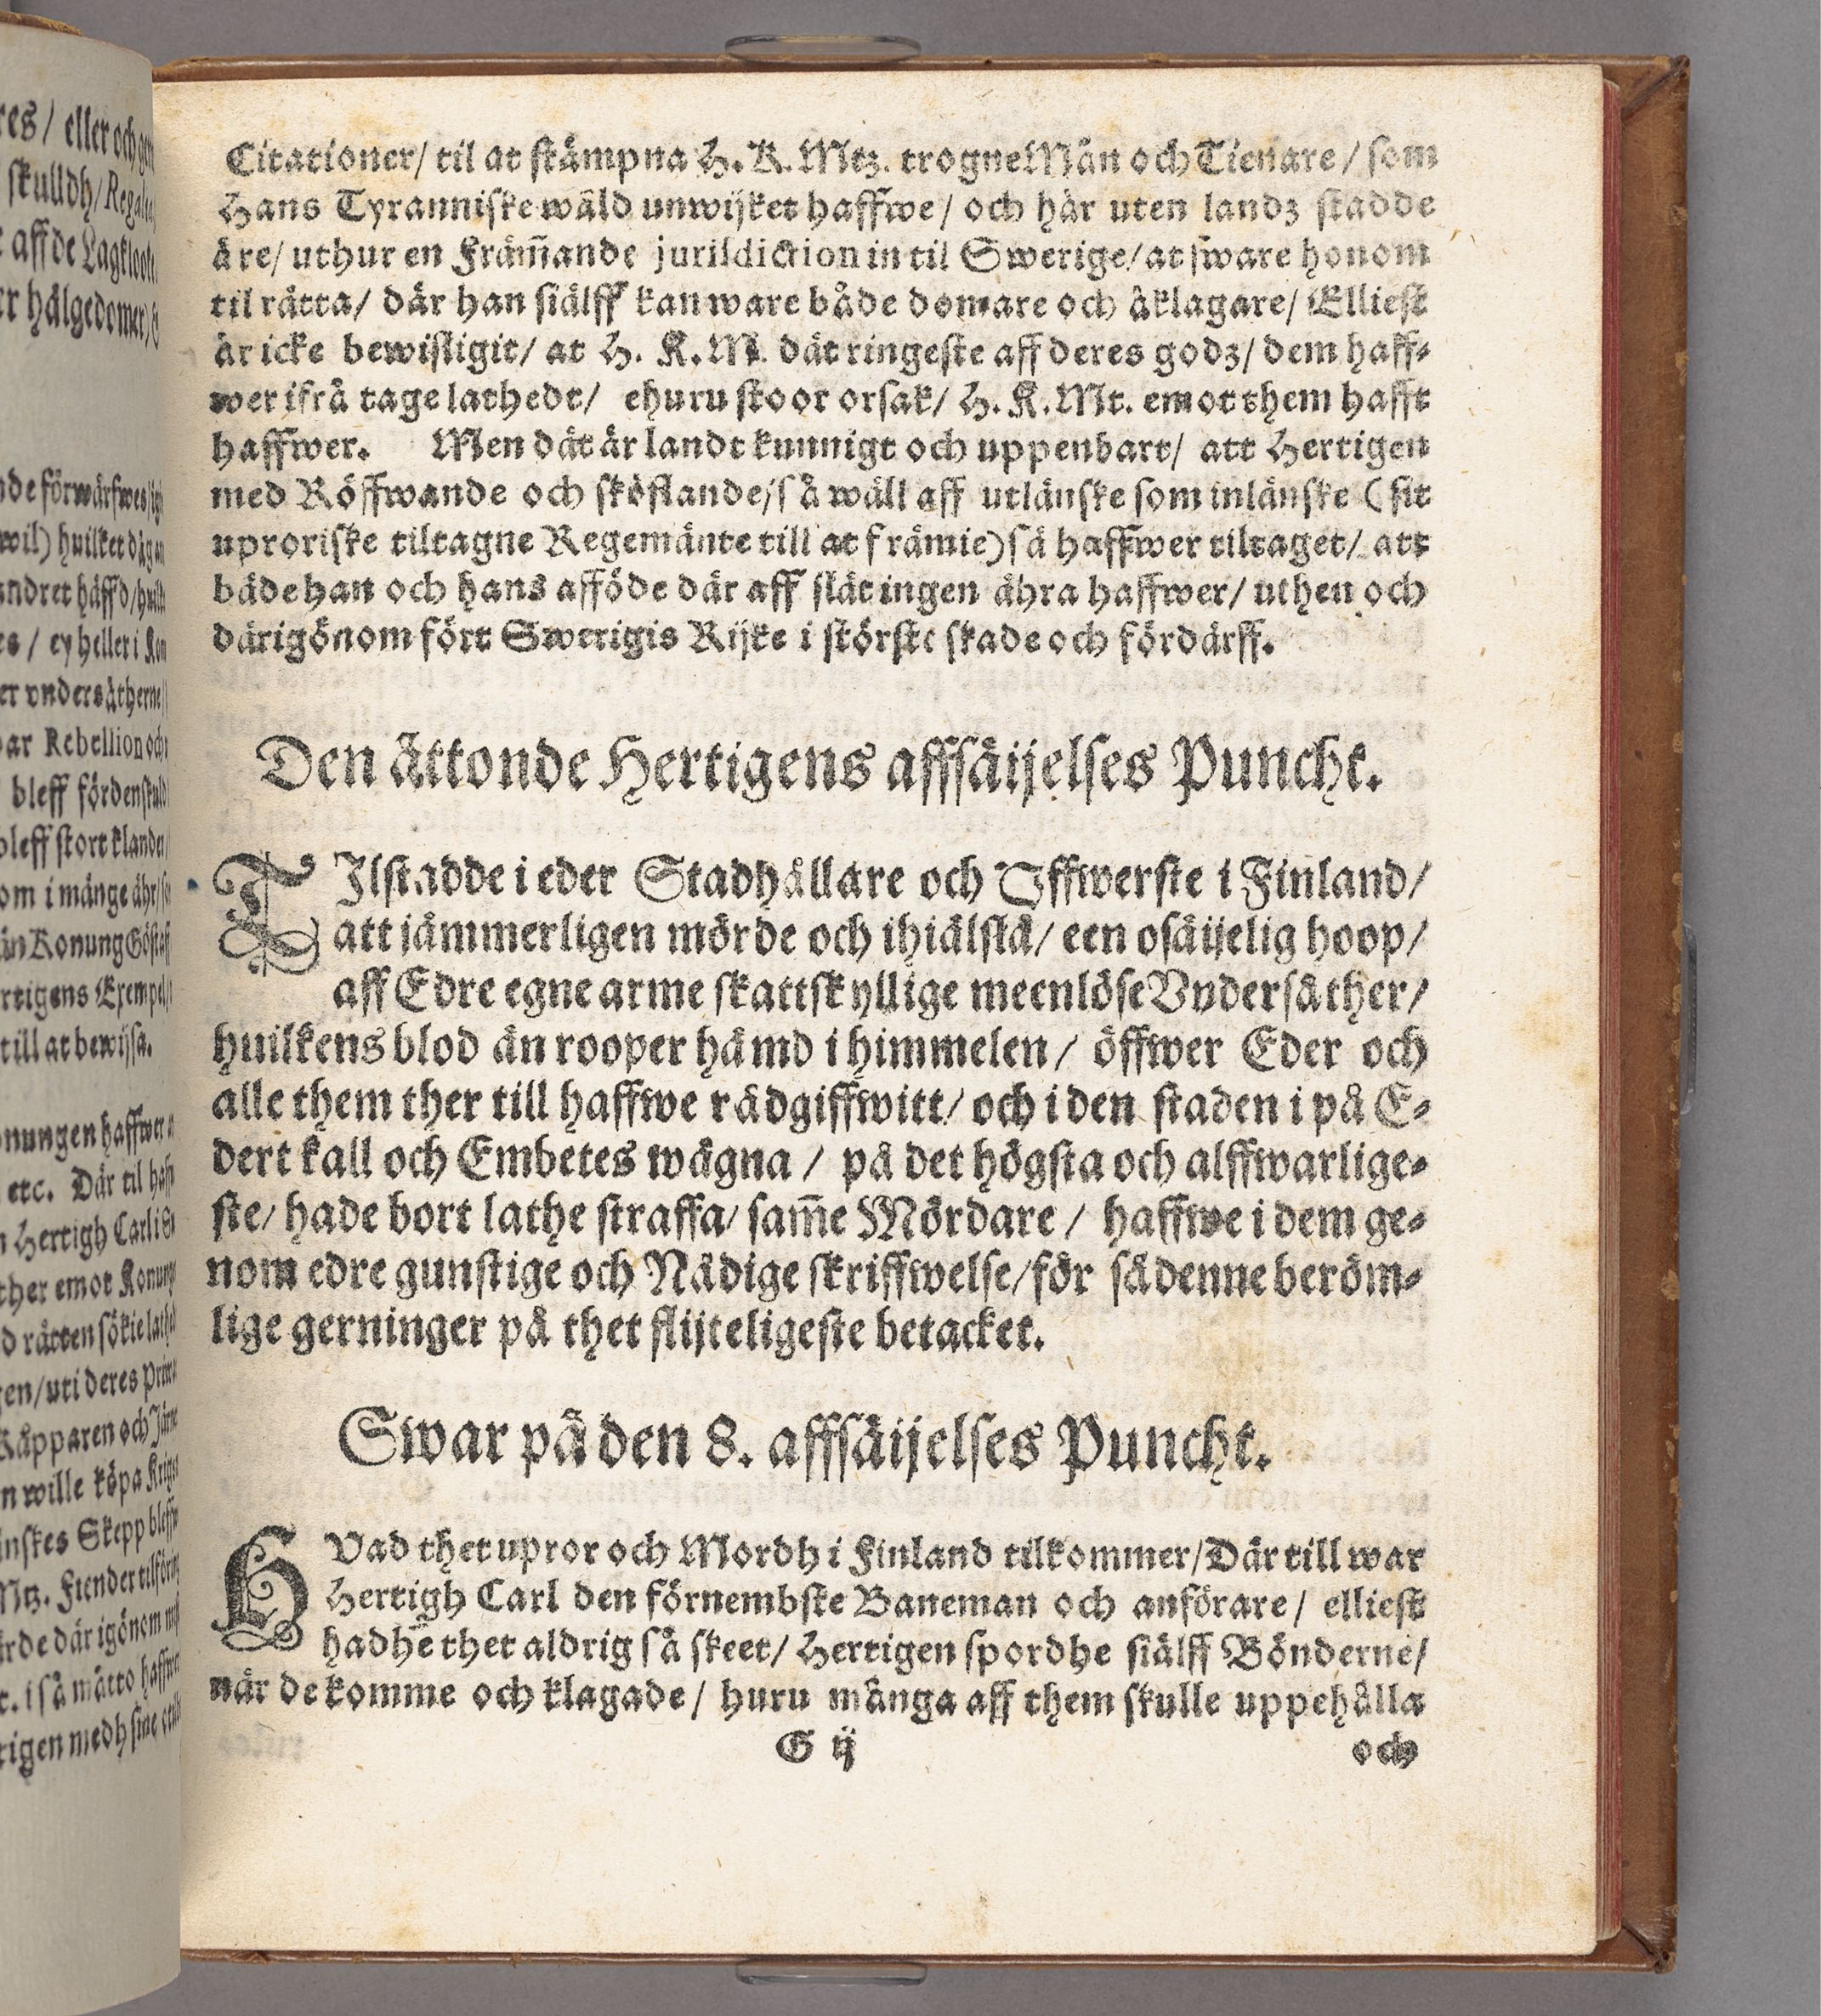 res/ eller och
skulldh/
aff de Lagkloote
er hålgedomer
de förwärfwes
wil) huilket
andret häffd/
es / ey heller i
er vndersåtherne
bar Rebellion och
bleff fördenskuld
bleff stort klander
om i månge åhr
än Konung Göstaff
rtigens Exempel
till at bewijsa.
onungen haffwer
etc. Där til
Hertigh Carl i
ther emot Konung
d rätten sökie
en/ uti deres
Kåpparen och
n wille köpa
inskes Skepp
Mtz. Fiender
rde där igönom
t. i så måtto
rtigen medh sine
Citationer/ til at stämpna H. K. Mtz. trogne Män och Tienare / som
Hans Tyranniske wåld unwijket haffwe / och här uten landz stadde
äre/ uthur en Främ̃ande jurisdiction in til Swerige/ at sware honom
til rätta/ där han siälff kan ware både domare och åklagare/ Elliest
är icke bewisligit/ at H. K. M. dät ringeste aff deres godz/ dem haff⸗
wer ifrå tage lathedt/ ehuru stoor orsak/ H. K. Mt. emot them hafft
haffwer. Men dät är landt kunnigt och uppenbart/ att Hertigen
med Röffwande och sköflande/ så wäll aff utlänske som inlänske (sit
uproriske tiltagne Regemänte till at främie) så haffwer tiltaget/ att
både han och hans afföde där aff slät ingen ähra haffwer/ uthen och
därigönom fört Swerigis Rijke i störste skade och fördärff.
Den åttonde Hertigens affsäijelses Puncht.
TIlstadde i eder Stadhållare och Öffwerste i Finland/
att jämmerligen mörde och ihiälslå/ een osäijelig hoop/
aff Edre egne arme skattskyllige meenlöse Vndersåther/
huilkens blod än rooper hämd i himmelen / öffwer Eder och
alle them ther till haffwe rådgiffwitt/ och i den staden i på E⸗
dert kall och Embetes wägna / på det högsta och alffwarlige⸗
ste/ hade bort lathe straffa/ sam̃e Mördare / haffwe i dem ge⸗
nom edre gunstige och Nådige skriffwelse/ för sådenne beröm⸗
lige gerninger på thet flijteligeste betacket.
Swar på den 8. affsäijelses Puncht.
HVad thet upror och Mordh i Finland tilkommer/ Där till war
Hertigh Carl den förnembste Baneman och anförare / elliest
hadhe thet aldrig så skeet/ Hertigen spordhe siälff Bönderne/
när de komme och klagade / huru många aff them skulle uppehålla
G ij
och